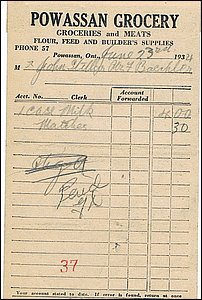 POWASSAN GROCERY
GROCERIES and MEATS
FLOUR, FEED AND BUILDER'S SUPPLIES
PHONE 57
Powassan, Ont., June 23rd 193
M John
Acct. No. Clerk Account Forwarded
1 Case Milk 4 00
Matches 30
Paid
37
Your account stated to date. If error is found, return at once